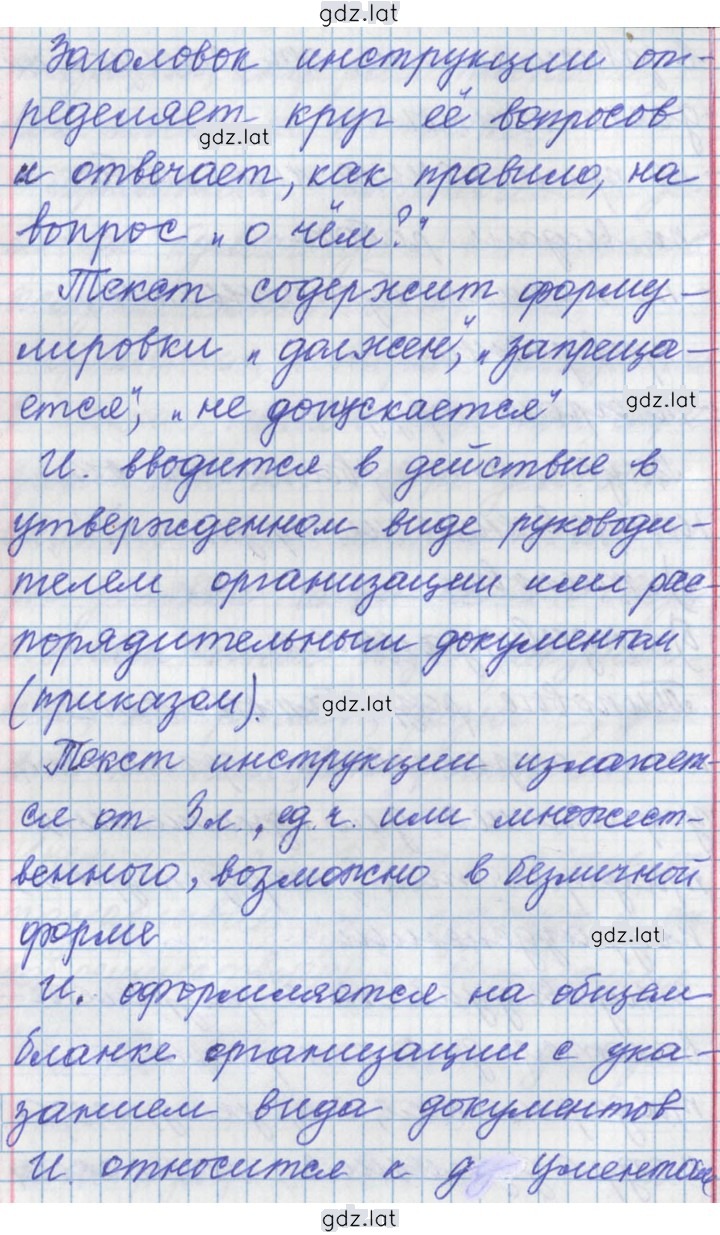 gdz.lat
Заголовок инструкции оп-
ределяет круг её вопросов
gdz.lat
и отвечает, как правило, на
вопрос „о чём?"
Текст содержит форму-
лировки „должен", „запреща-
ется", „не допускается"
gdz.lat
И. вводится в действие в
утвержденном виде руководи-
телем организации или рас
порядительным документом
(приказом).
gdz.lat
Текст инструкции излагает-
ся от 3л., ед.ч. или множест-
венного, возможно в безличной
форме
gdz.lat
И. оформляется на общем
бланке организации с ука-
занием вида документов
И. относится к
gdz.lat